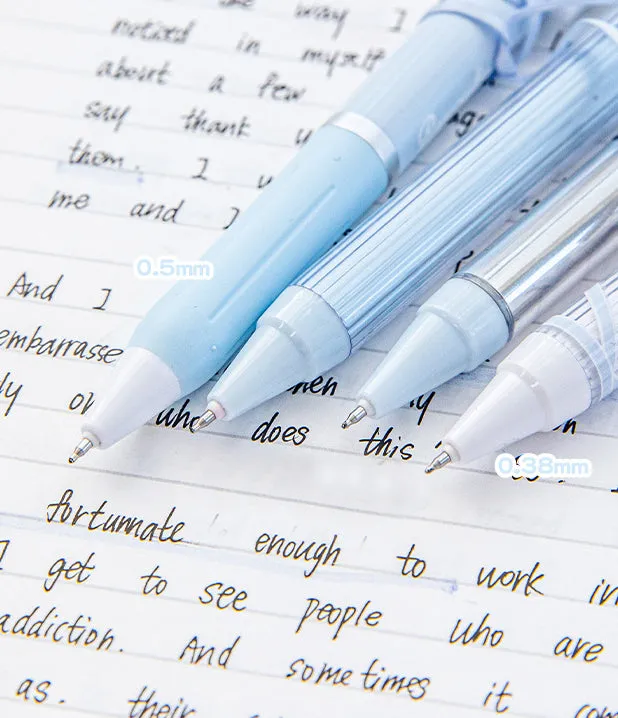 way I
noticed in myself
about a few
say thank
them. I
me and I
0.5mm
And I
embarrasse
who does this
0.38mm
fortunnate enough to work in
I get to see people who are
addiction. And sometimes it com
as. their